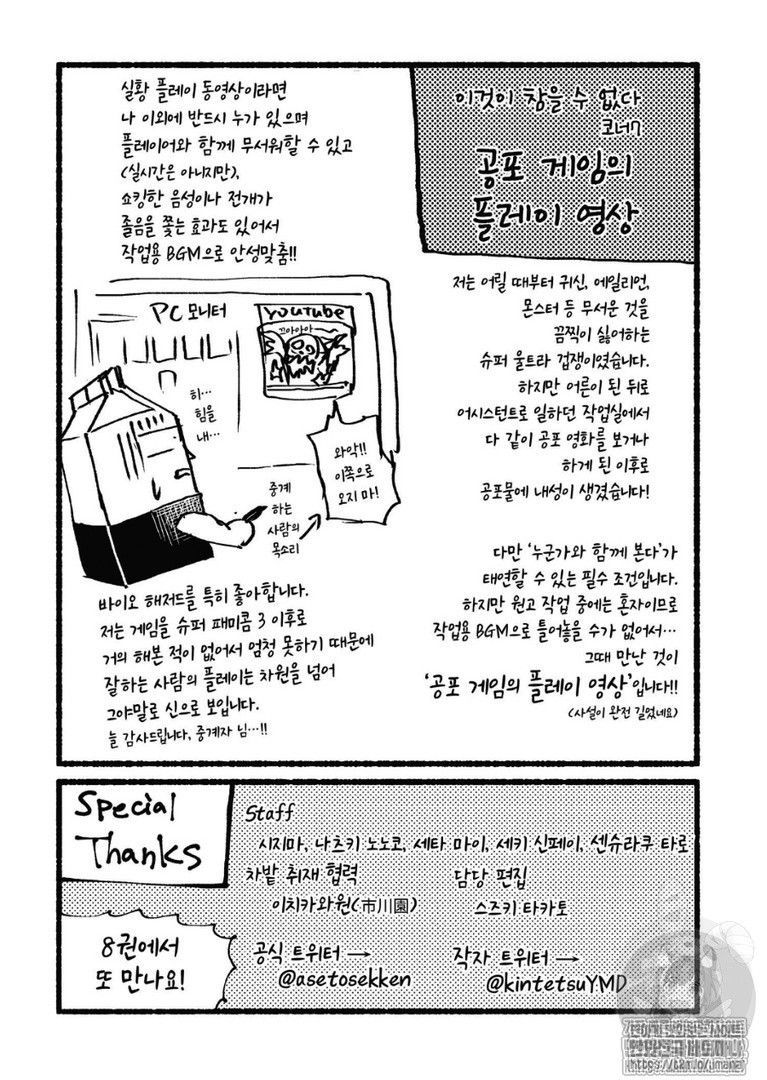 이것이 참을 수 없다
코너7
공포 게임의
플레이 영상
저는 어릴 때부터 귀신, 에일리언,
몬스터 등 무서운 것을
끔찍이 싫어하는
슈퍼 울트라 겁쟁이였습니다.
하지만 어른이 된 뒤로
어시스턴트로 일하던 작업실에서
다 같이 공포 영화를 보거나
하게 된 이후로
공포물에 내성이 생겼습니다!
다만 '누군가와 함께 본다'가
태연할 수 있는 필수 조건입니다.
하지만 원고 작업 중에는 혼자이므로
작업용 BGM으로 틀어놓을 수가 없어서…
그때 만난 것이
'공포 게임의 플레이 영상'입니다!!
(사설이 완전 길었네요)
실황 플레이 동영상이라면
나 이외에 반드시 누가 있으며
플레이어와 함께 무서워할 수 있고
(실시간은 아니지만),
쇼킹한 음성이나 전개가
졸음을 쫓는 효과도 있어서
작업용 BGM으로 안성맞춤!!
PC 모니터
YouTube
끄아아아
히…
힘을
내…
와악!!
이쪽으로
오지 마!
중계
하는
사람의
목소리
바이오 해저드를 특히 좋아합니다.
저는 게임을 슈퍼 패미콤 3 이후로
거의 해본 적이 없어서 엄청 못하기 때문에
잘하는 사람의 플레이는 차원을 넘어
그야말로 신으로 보입니다.
늘 감사드립니다, 중계자 님…!!
Special
Thanks
8권에서
또 만나요!
Staff
시지마, 나츠키 노노코, 세타 마이, 세키 신페이, 센슈라쿠 타로
차밭 취재 협력
이치카와원(市川園)
담당 편집
스즈키 타카토
공식 트위터 →
@asetosekken
작자 트위터 →
@kintetsuYMD